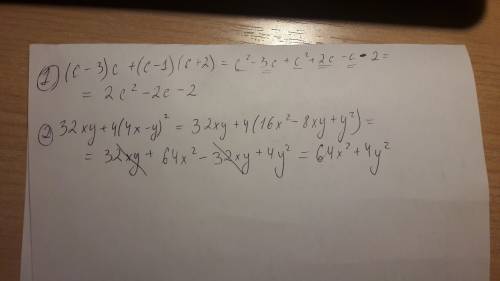 1) (c-3)c+(c-1)(c+2)=c²-3c+c²+2c-c-2=
=2c²-2c-2
2) 32xy+4(4x-y)²=32xy+4(16x²-8xy+y²)=
=32xy+64x²-32xy+4y²=64x²+4y²